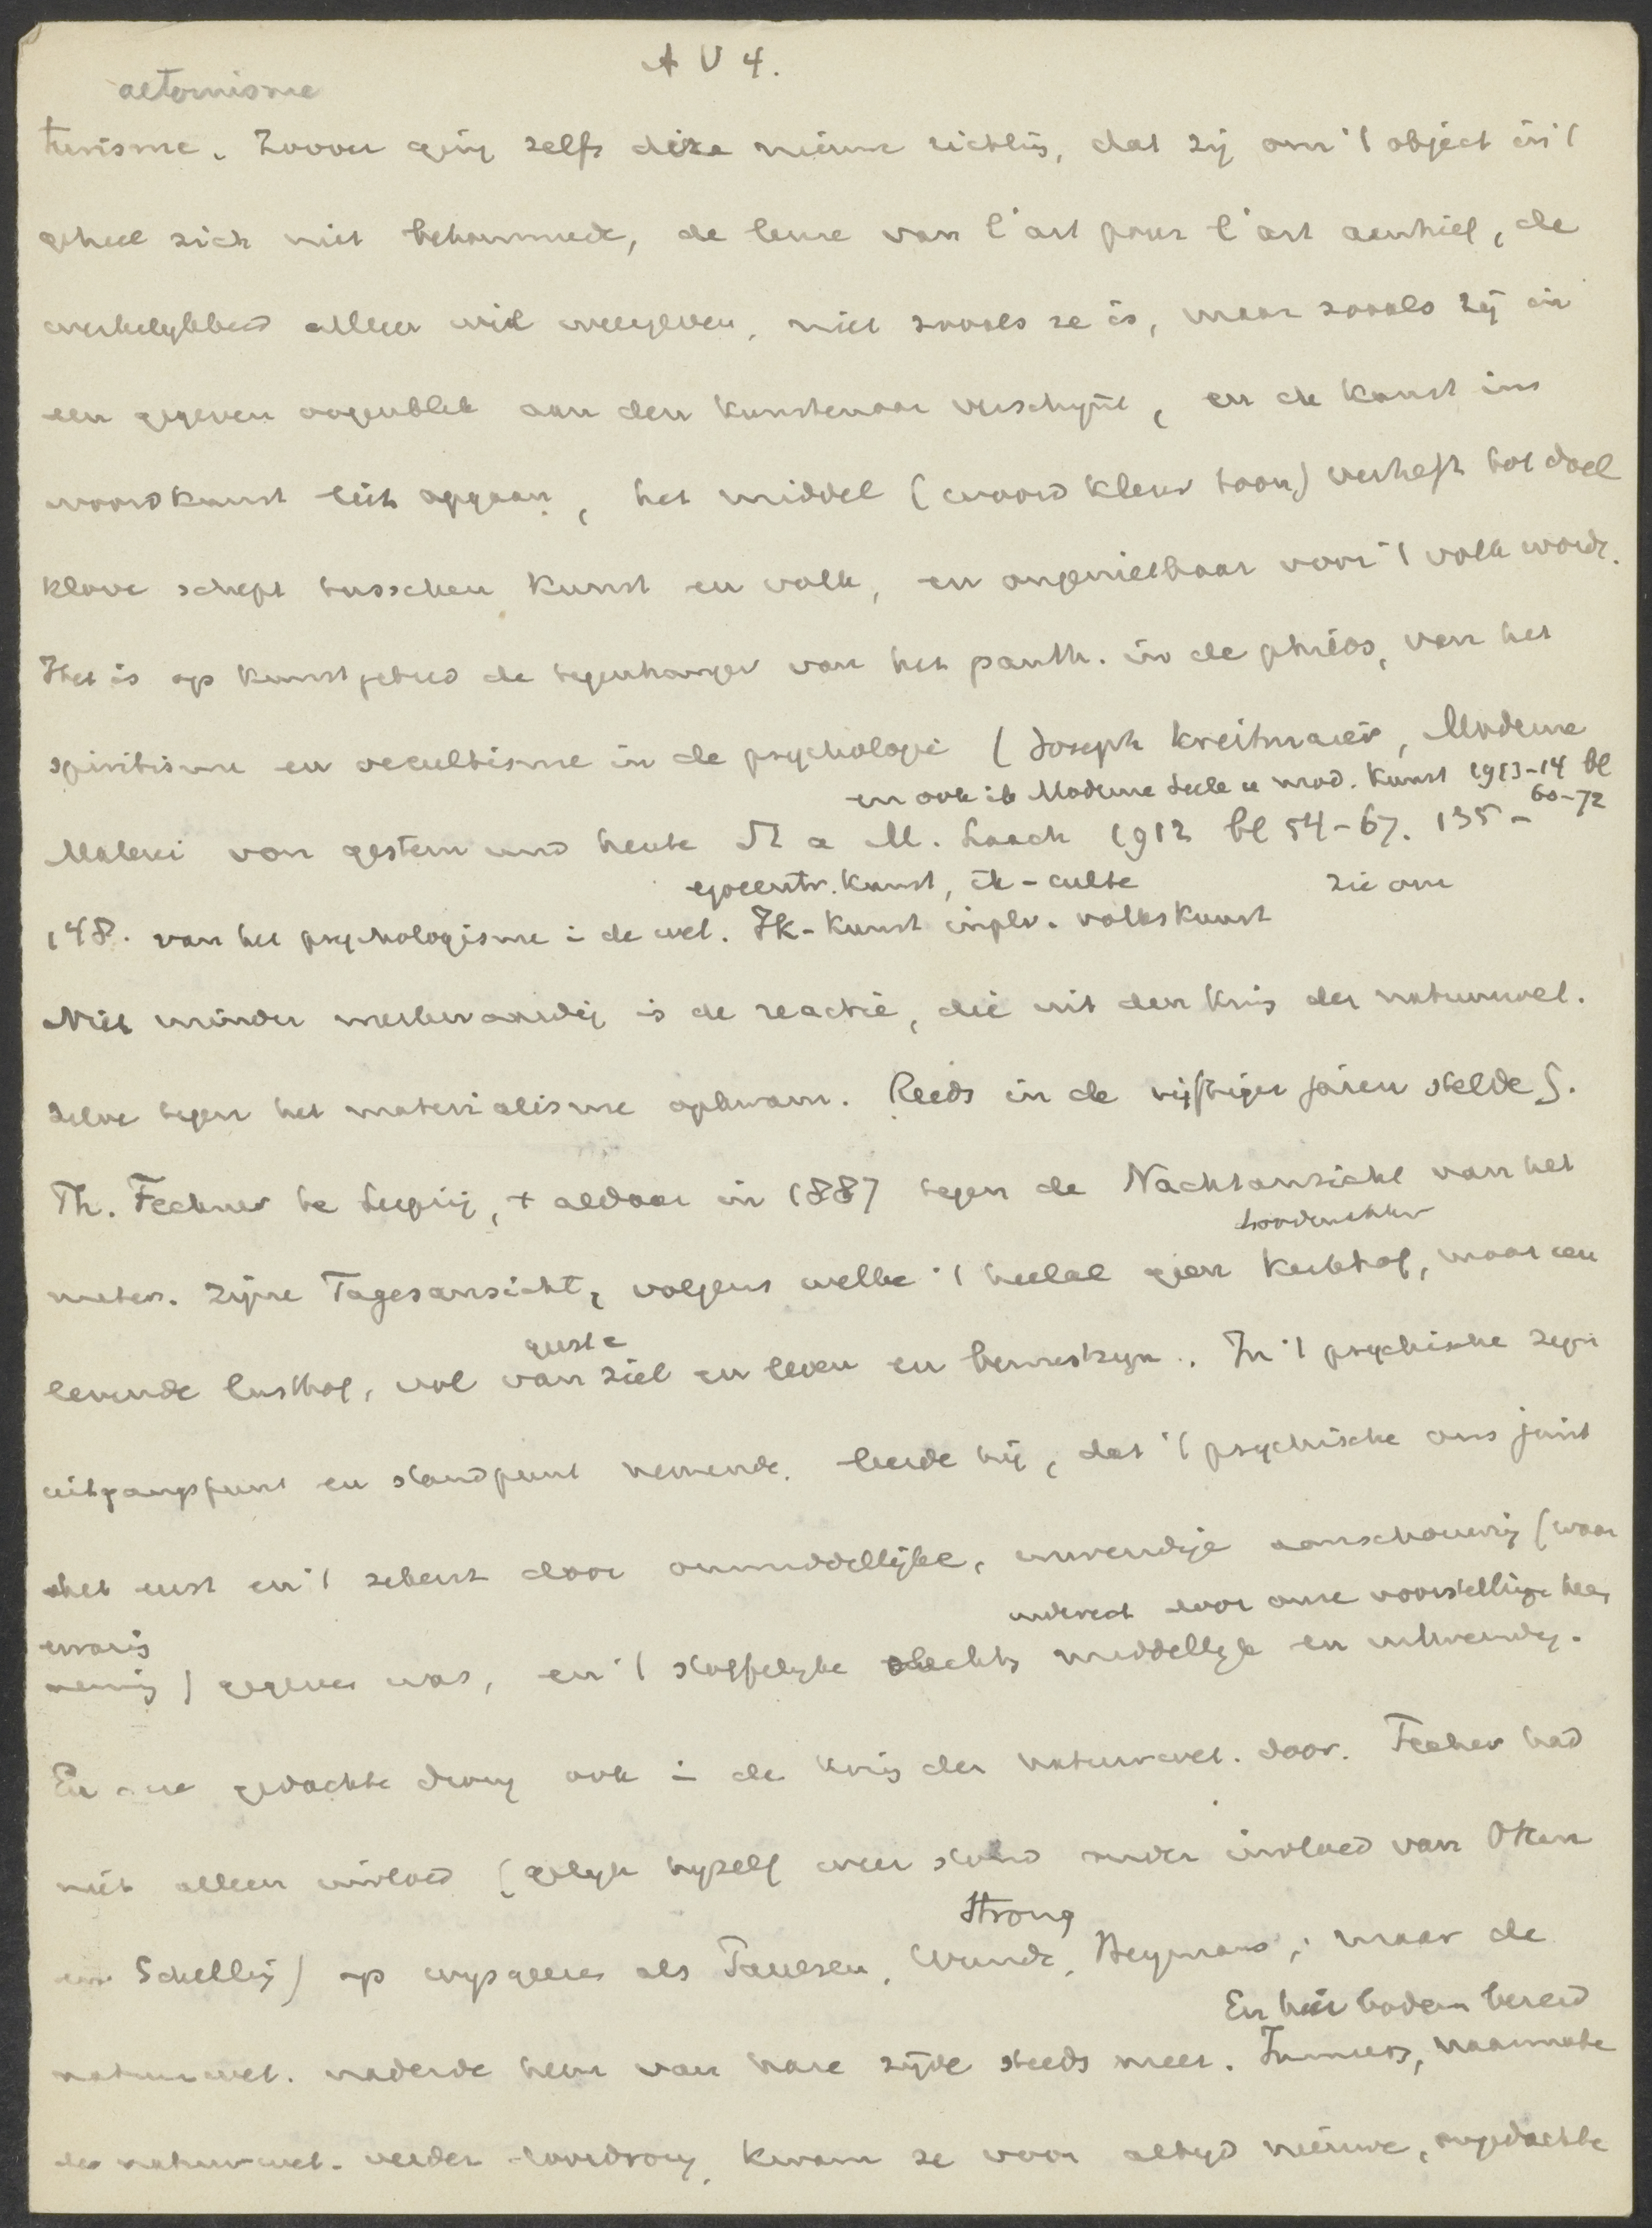 A V 4.
aeternisme
turisme. Zoover ging zelfs deze nieuwe richting, dat zij om 't object in 't
geheel zich niet bekommerde, de leuze van l'art pour l'art aanhief, de
werkelykheid alleen wil weergeven, niet zooals ze is, maar zooals zy in
een gegeven oogenblik aan den kunstenaar verschynt, en de kunst in
woordkunst liet opgaan, het middel (woord kleur toon) verheft tot doel
klove schept tusschen kunst en volk, en ongenietbaar voor 't volk wordt.
Het is op kunstgebied de tegenhanger van het panth. in de philos, van het
spiritisme en occultisme in de psychologie (Joseph Kreitmaier, Moderne
en ook ib Moderne Seele u mod. Kunst 1913-14 bl
60-72
Malerei von gestern und heute St a M. Laach 1912 bl 54-67. 135-
egocentr. kunst, ik-culte zie om
148. van het psychologisme in de wet. Ik-kunst inplv. volkskunst
Niet minder merkwaardig is de reactie, die uit den kring der natuurwet.
zelve tegen het materialisme opkwam. Reeds in de vijftiger jaren stelde G.
Th. Fechner te Leipzig, + aldaar in 1887 tegen de Nachtansicht van het
mater. zijne Tagesansicht, volgens welke 't heelal geen kerkhof, maar een
levende lusthof, vol van ziel en leven en bewustzyn. In 't psychische zyn
geest
uitgangspunt en standpunt nemende, leerde hij, dat 't psychische ons juist
het eerst en 't zekerst door onmiddellijke, inwendige aanschouwing (waar
indirect door onze voorstelling heen
ervaring
neming) gegeven was, en 't stoffelyke slechts middellyk en uitwendig.
En deze gedachte drong ook in de kring der natuurwet. door. Fechner had
niet alleen invloed (gelyk hyzelf weer stond onder invloed van Oken
Strong
en Schelling) op wysgeeren als Paulsen, Wundt, Heymans; maar de
En hier bodem bereid
natuurwet. naderde hem van hare zijde steeds meer. Immers, naarmate
de natuurwet. verder doordrong, kwam ze voor altyd nieuwe, ongedachte